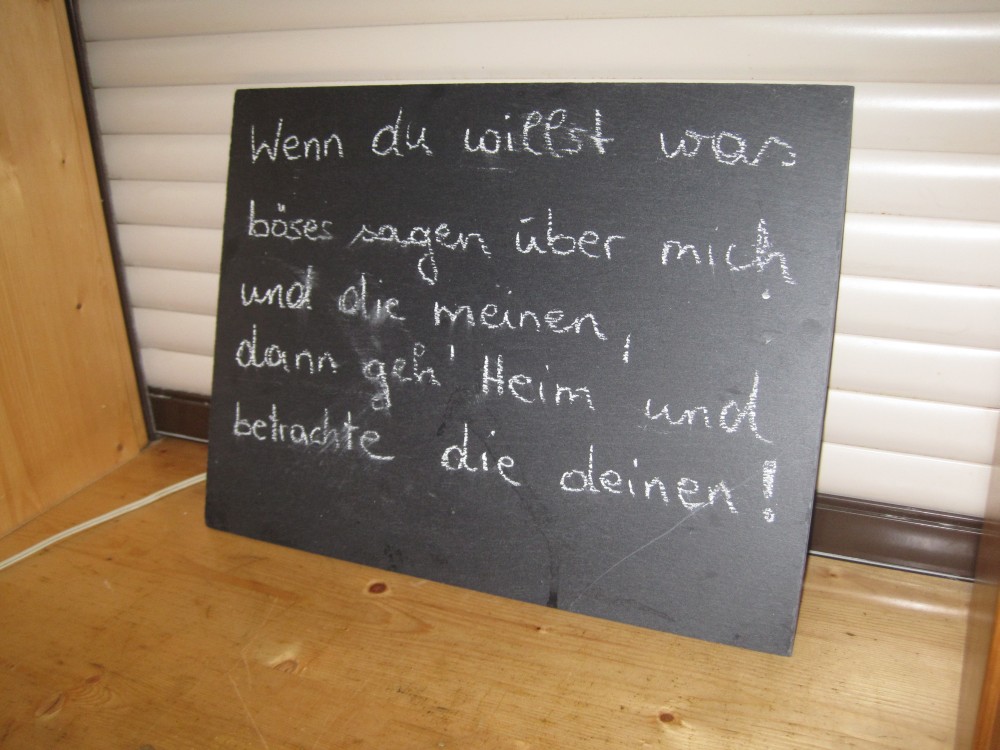 Wenn du willst was
böses sagen über mich
und die meinen,
dann geh' Heim und
betrachte die deinen!